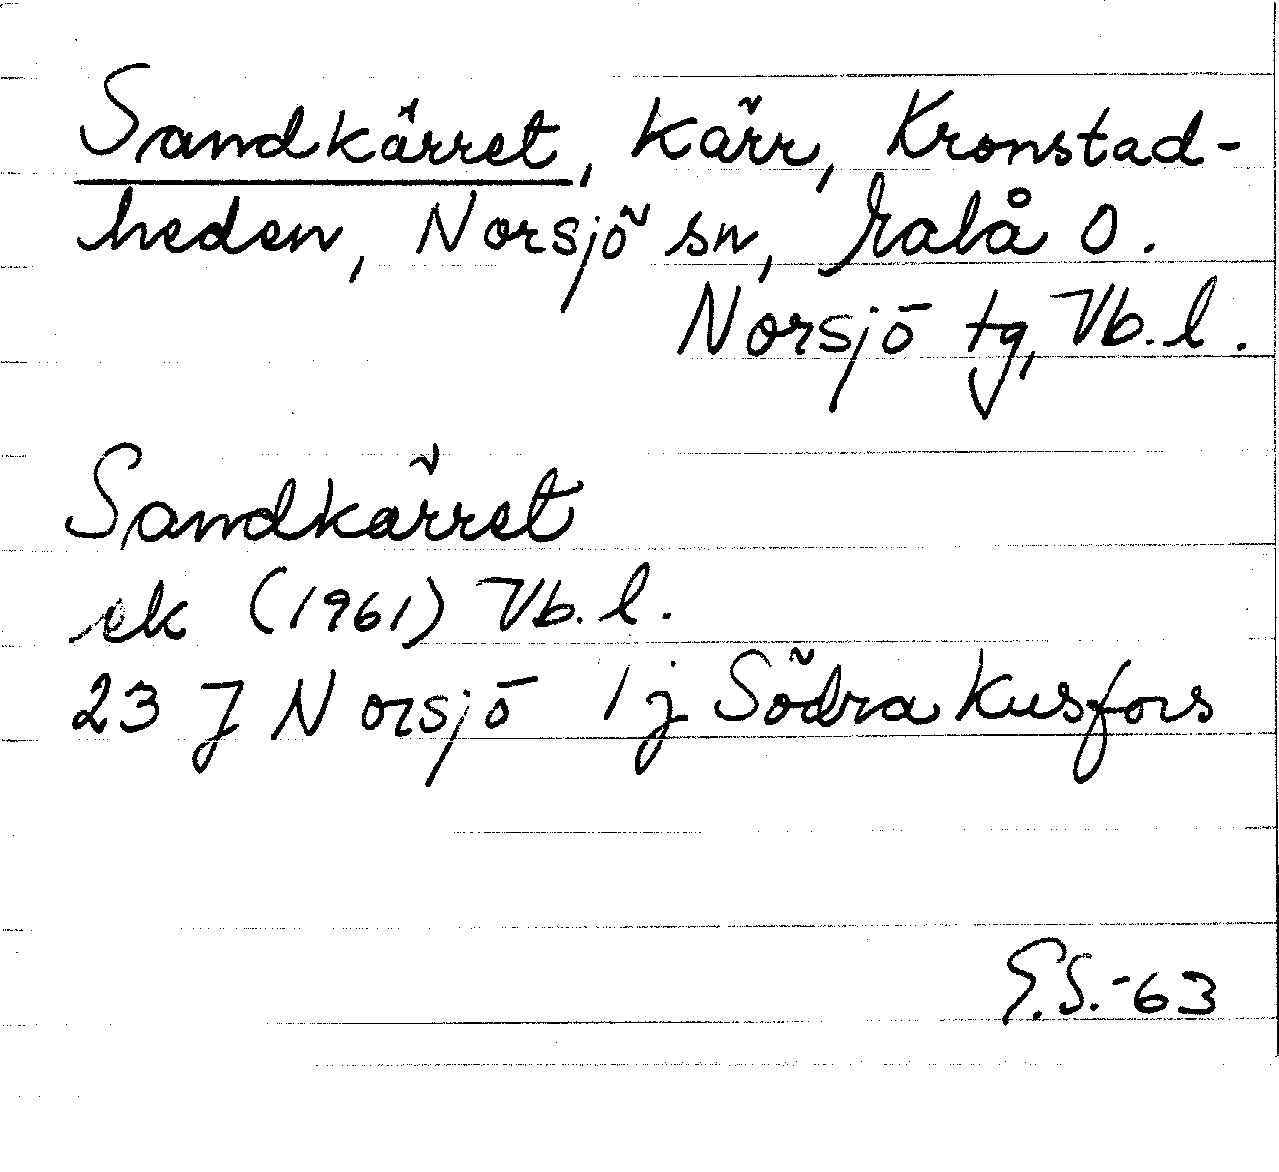 Sandkärret, kärr, Kronstad-
heden, Norsjö sn, Malå o.
Norsjö tg, Vb. l.
Sandkärret
ek (1961) Vb. l.
23 J Norsjö 1j Södra Kusfors
G.S.-63